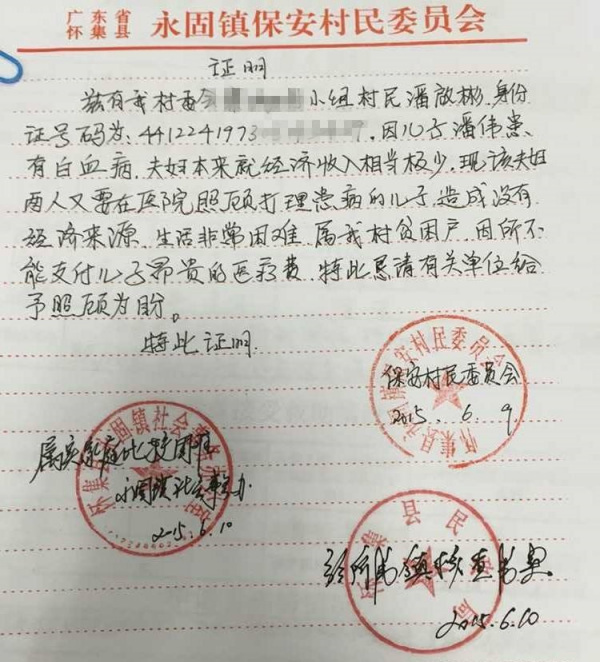 广东省
怀集县
永固镇保安村民委员会
证明
兹有我村委会 小组村民潘啟彬,身份
证号码为:4412241973 ,因儿子潘伟患、
有白血病,夫妇本来就经济收入相当极少,现该夫妇
两人又要在医院照顾打理患病的儿子,造成没有
经济来源,生活非常困难,属我村贫困户,因所不
能支付儿子昂贵的医疗费,特此恳请有关单位给
予照顾为盼。
特此证明
保安村民委员会
2015.6.9
属实,家庭比较困难
永固镇社会事务办
2015.6.10
镇核查书
2015.6.10